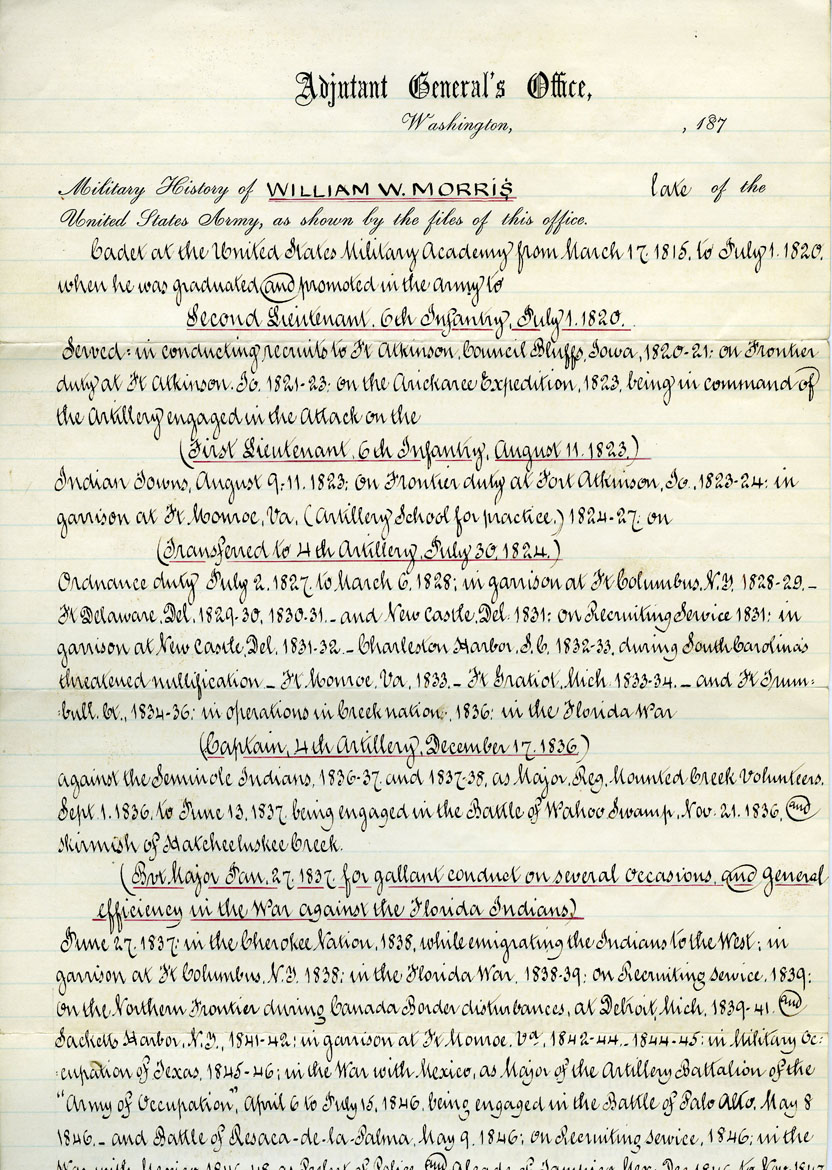 Adjutant General's Office,
Washington, , 187
Military History of WILLIAM W. MORRIS late of the
United States Army, as shown by the files of this office.
Cadet at the United States Military Academy from March 17. 1815. to July 1. 1820.
when he was graduated and promoted in the Army to
Second Lieutenant. 6th Infantry, July 1. 1820.
Served: in conducting recruits to Ft Atkinson, Council Bluffs, Iowa, 1820-21: on Frontier
duty at Ft Atkinson. Io. 1821-23: on the Arickaree Expedition, 1823, being in command of
the Artillery engaged in the Attack on the
(First Lieutenant, 6th Infantry, August 11. 1823.)
Indian Towns, August 9-11. 1823: on Frontier duty at Fort Atkinson, Io., 1823-24: in
garrison at Ft Monroe, Va, (Artillery School for practice,) 1824-27: on
(Transferred to 4th Artillery, July 30, 1824.)
Ordnance duty July 2. 1827 to March 6, 1828; in garrison at Ft Columbus, N.Y. 1828-29.—
Ft Delaware, Del, 1829-30, 1830-31.— and New Castle, Del. 1831: on Recruiting Service 1831: in
garrison at New Castle, Del. 1831-32.— Charleston Harbor, S.C. 1832-33, during South Carolina's
threatened nullification — Ft Monroe, Va, 1833.— Ft Gratiot, Mich. 1833-34.— and Ft Trum-
:bull. Ct., 1834-36: in operations in Creek nation, 1836: in the Florida War
(Captain, 4th Artillery, December 17. 1836)
against the Seminole Indians, 1836-37. and 1837-38, as Major, Reg. Mounted Creek Volunteers.
Sept. 1. 1836. to June 13, 1837. being engaged in the Battle of Wahoo Swamp, Nov. 21. 1836, and
skirmish of Hatcheeluskee Creek.
(Bvt Major Jan. 27. 1837. for gallant conduct on several occasions, and general
efficiency in the War against the Florida Indians)
June 27. 1837: in the Cherokee Nation, 1838, while emigrating the Indians to the West; in
garrison at Ft Columbus, N.Y. 1838; in the Florida War, 1838-39: on Recruiting service, 1839:
on the Northern Frontier during Canada Border disturbances, at Detroit, Mich, 1839-41. and
Sacketts Harbor, N.Y., 1841-42: in garrison at Ft Monroe. Va, 1842-44.— 1844-45: in Military Oc:
:cupation of Texas, 1845-46; in the War with Mexico, as Major of the Artillery Battalion of the
"Army of Occupation", April 6 to July 15, 1846, being engaged in the Battle of Palo Alto, May 8
1846.— and Battle of Resaca-de-la-Palma, May 9, 1846; on Recruiting service, 1846; in the
War with Mexico 1846-48 as